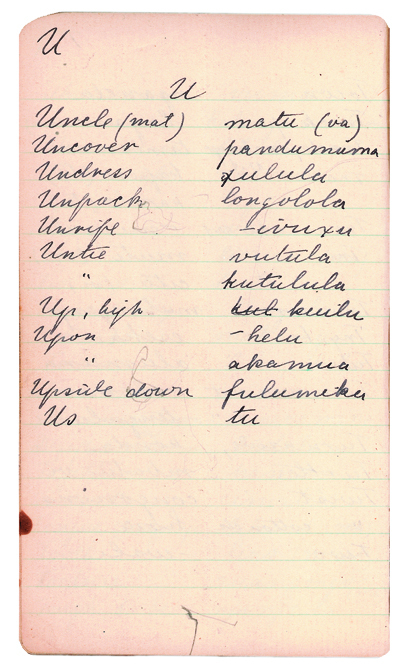 U
U
Uncle (mat) matu (va)
Uncover pandumuma
Undress xulula
Unpack longolola
Unripe -ivuxu
Untie vutula
" kutulula
Up, high kut kuilu
Upon -helu
" akamua
Upside down fulumeka
Us tu